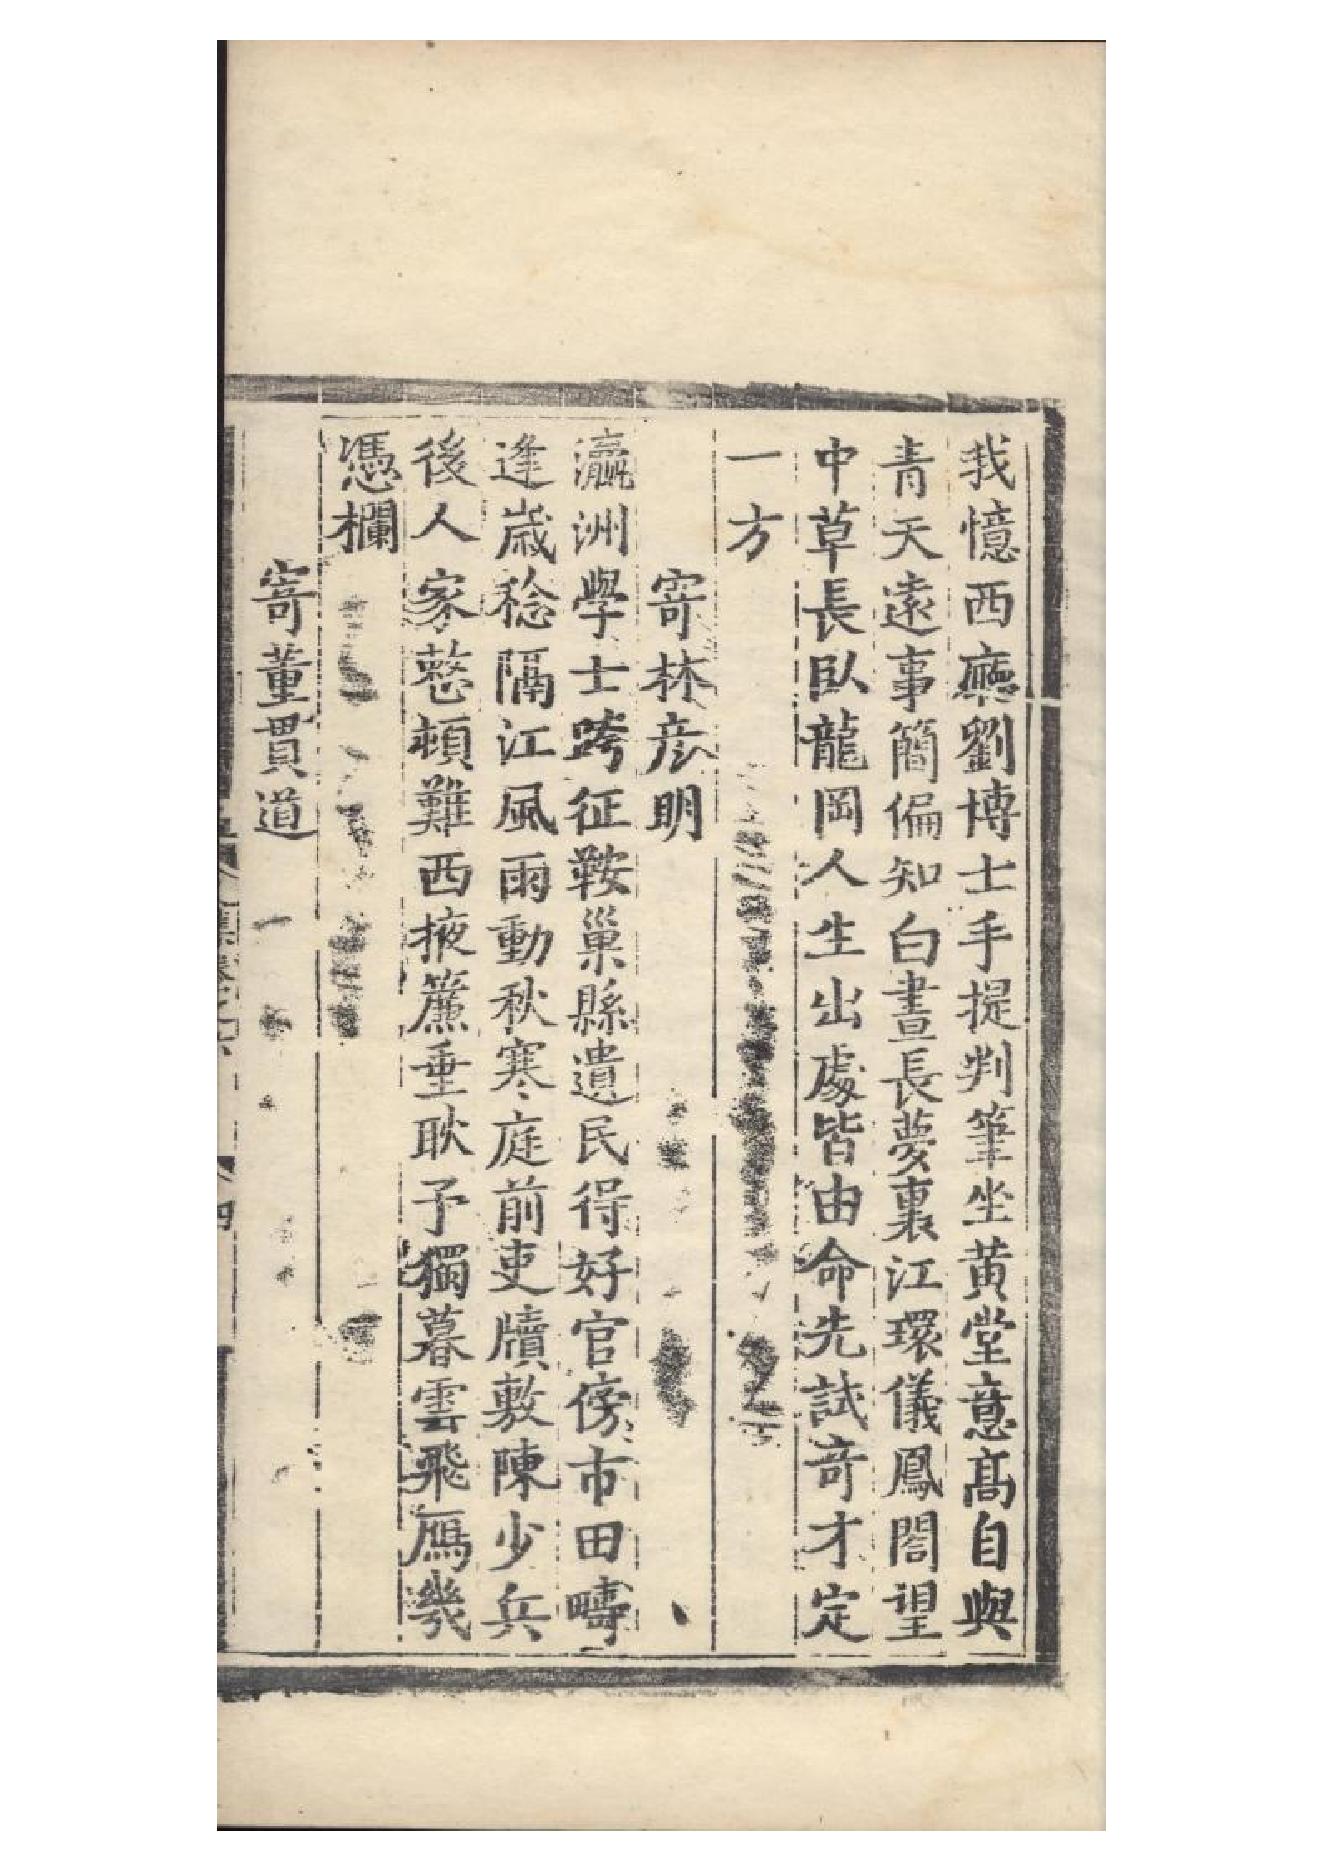 我憶西廳劉博士手提判筆坐黄堂意髙自與
青天遠事簡偏知白晝長夢裏江環儀鳳閣望
中草長臥龍岡人生出處皆由命先試竒才定
一方
寄林彦明
瀛洲學士跨征鞍巢縣遺民得好官傍市田疇
逢歲稔隔江風雨動秋寒庭前吏牘敷陳少兵
後人家憗頓難西掖簾垂耿予獨暮雲飛鴈幾
憑欄
寄董貫道